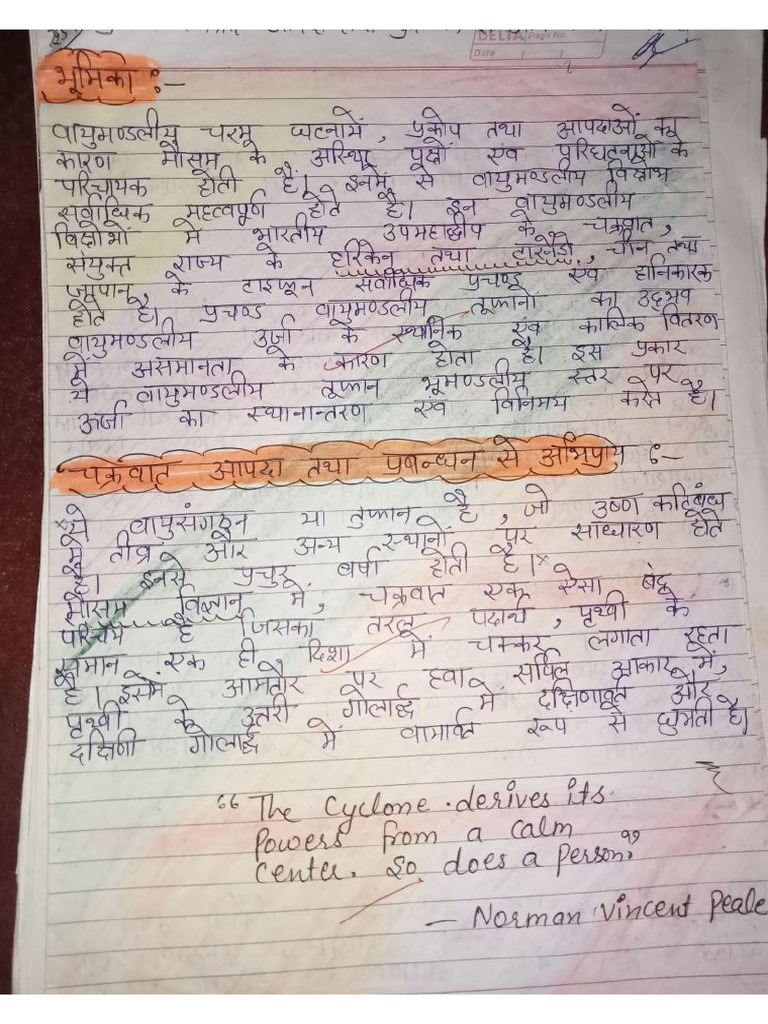 DELTA Page No.
Date / /
भूमिका :-
वायुमण्डलीय चरम घटनायें, प्रकोप तथा आपदाओं का
कारण मौसम के अस्थिर पूक्षों एंव परिघटनाओं के
परिचायक होती है। इनमें से वायुमण्डलीय विक्षोभ
सर्वाधिक महत्वपूर्ण होते है। इन वायुमण्डलीय
विक्षोभों में भारतीय उपमहाद्वीप के चक्रवात,
संयुक्त राज्य के हरिकेन तथा टारनैडो, चीन तथा
जापान के टाइफून सर्वाधिक प्रचण्ड एंव हानिकारक
होते है। प्रचण्ड वायुमण्डलीय तूफानों का उद्भव
वायुमण्डलीय उर्जा के स्थानिक एंव कालिक वितरण
में असमानता के कारण होता है। इस प्रकार
ये वायुमण्डलीय तूफान भूमण्डलीय स्तर पर
ऊर्जा का स्थानान्तरण एंव विनिमय करते है।
चक्रवात आपदा तथा प्रबन्धन से अभिप्राय :-
ये वायुसंगठन या तुफान है, जो उष्ण कटिबंध
में तीव्र और अन्य स्थानों पर साधारण होते
है। इनसे प्रचुर वर्षा होती है।
मौसम विज्ञान में, चक्रवात एक ऐसा बंद
परिचम है जिसका तरल पदार्थ, पृथ्वी के
समान एक ही दिशा में चक्कर लगाता रहता
है। इसमें आमतौर पर हवा सर्पिल आकार में,
पृथ्वी के उत्तरी गोलार्द्ध में दक्षिणावर्त और
दक्षिणी गोलार्द्ध में वामावर्त रूप से घुमती है।
“The Cyclone derives its
Powers from a calm
Center. So does a person.”
— Norman Vincent Peale